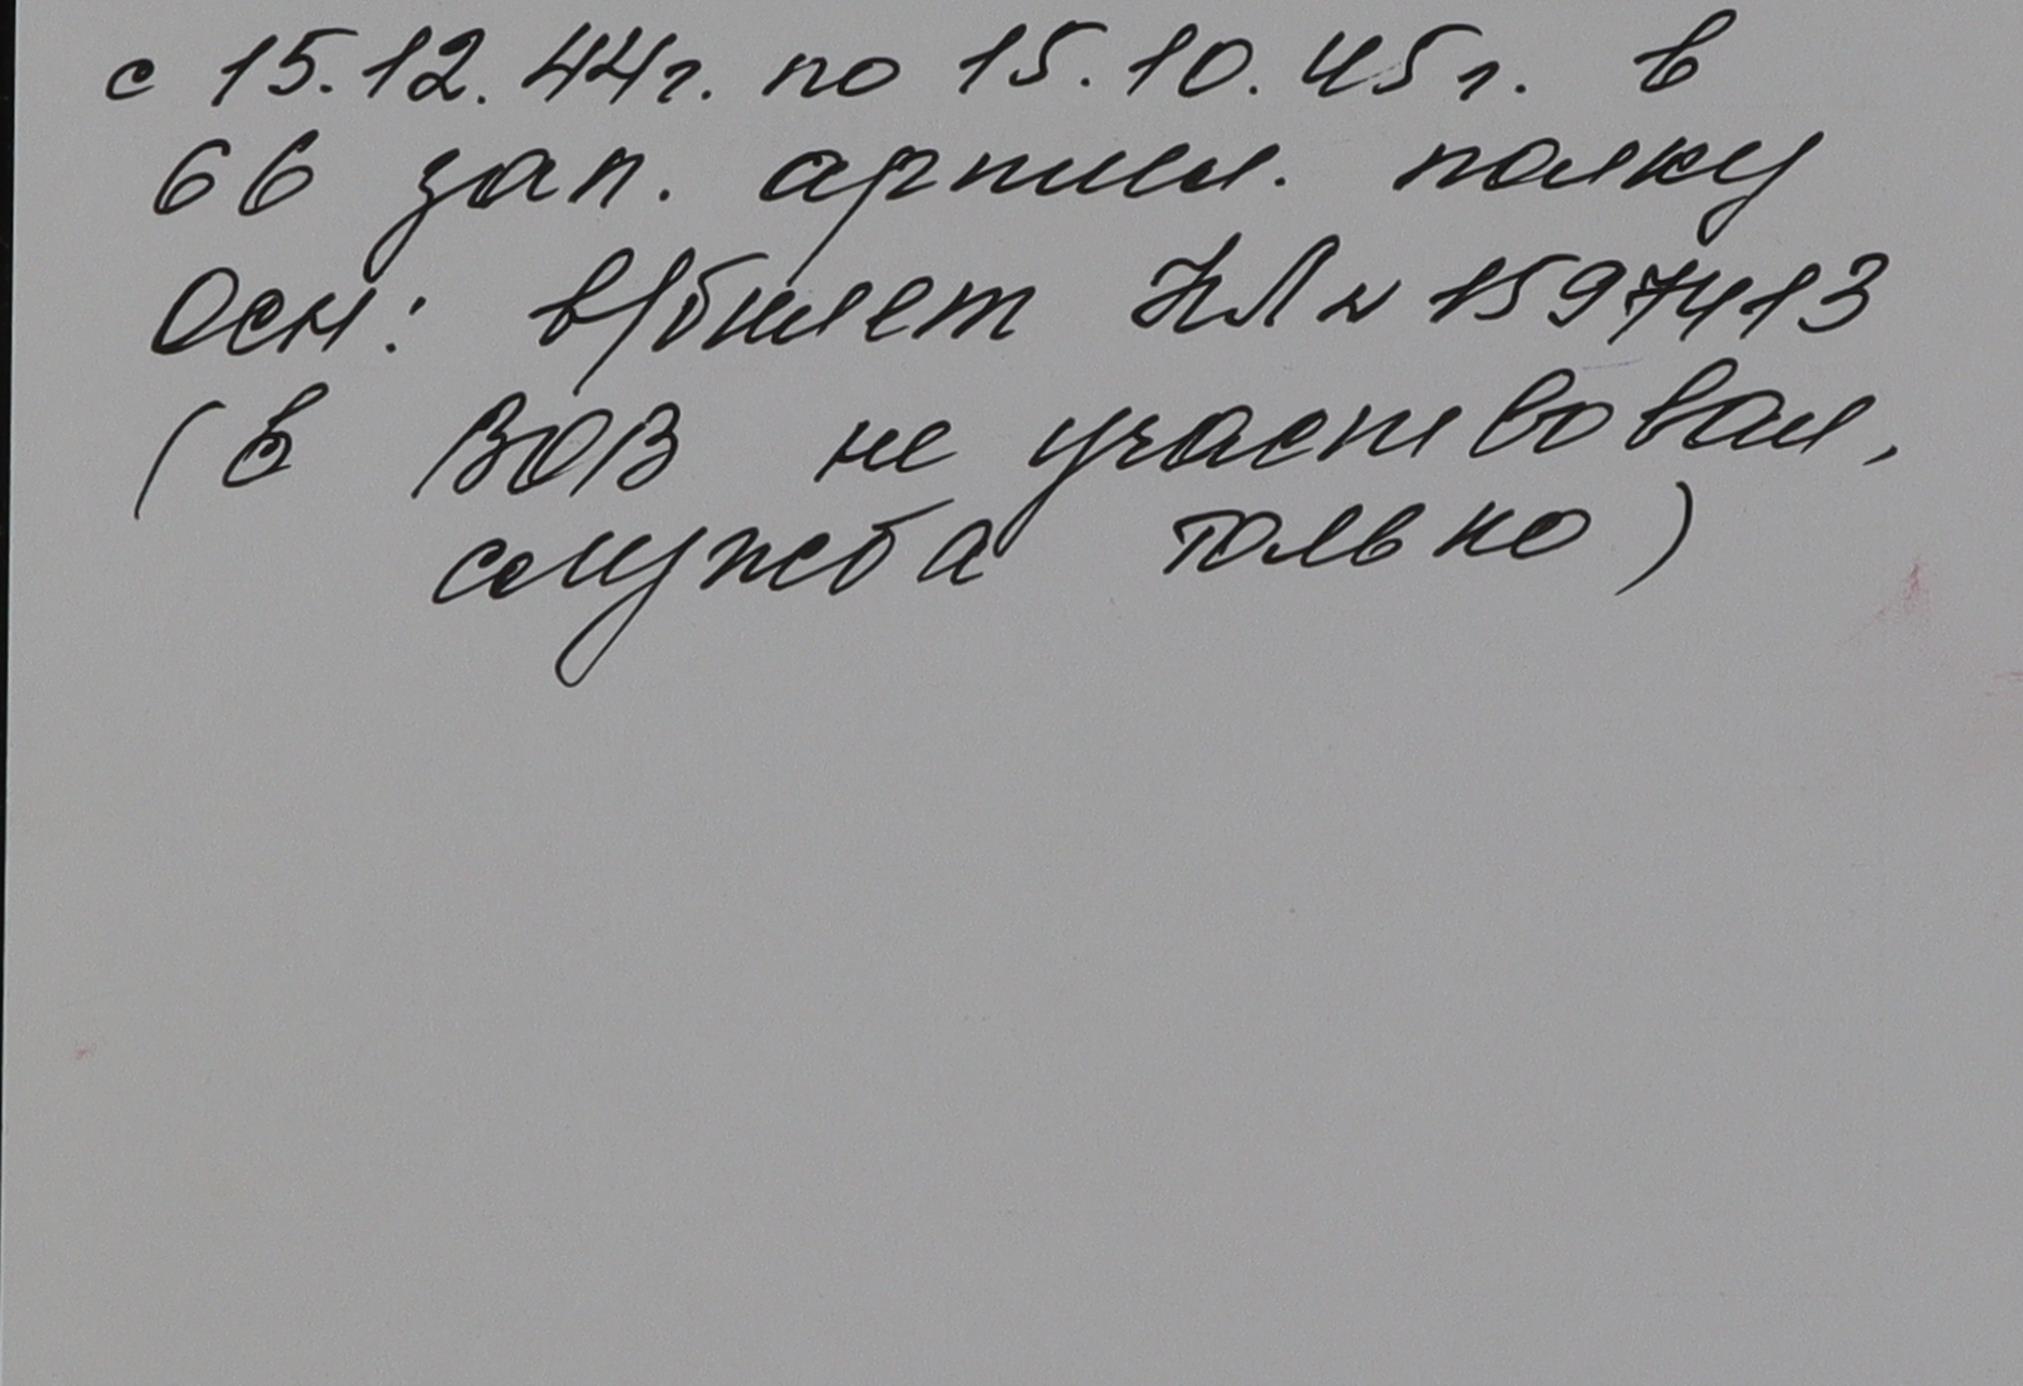 с 15.12.44г. по 15.10.45г. в
66 зап. артил. полку
Осн: в/билет НЛ № 1597413
(в ВОВ не участвовал,
служба только)